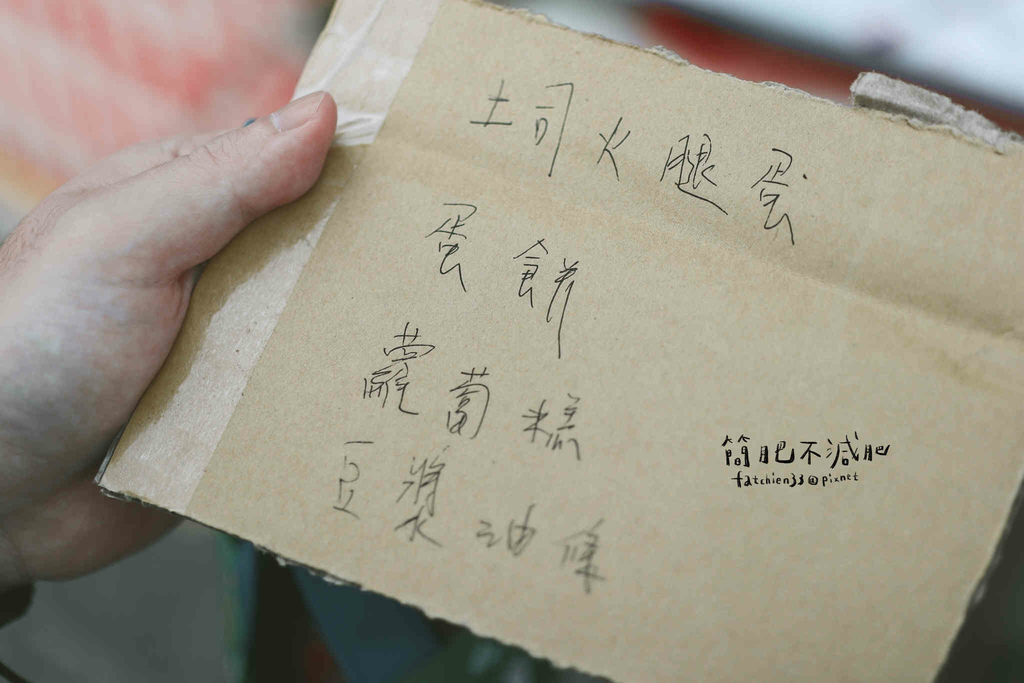 土司火腿蛋
蛋餅
蘿蔔糕
豆漿油條
簡肥不減肥
fatchien33@pixnet